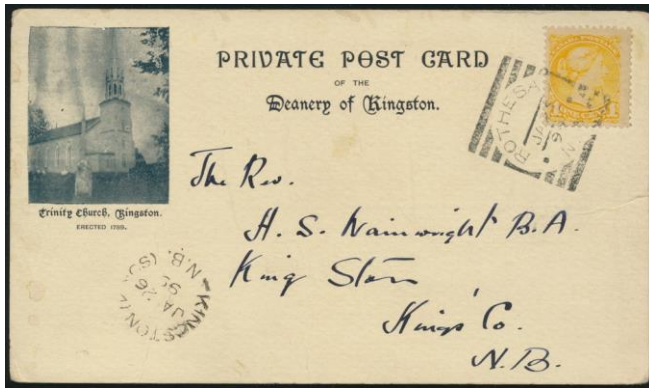 PRIVATE POST CARD
OF THE
Deanery of Kingston.
Trinity Church, Kingston.
ERECTED 1789.
ONE CENT
ROTHESAY
JA
N
The Rev.
H. S. Wainwright B.A.
King Ston
Kings Co.
N.B.
KINGSTON
JA 26
N.B.